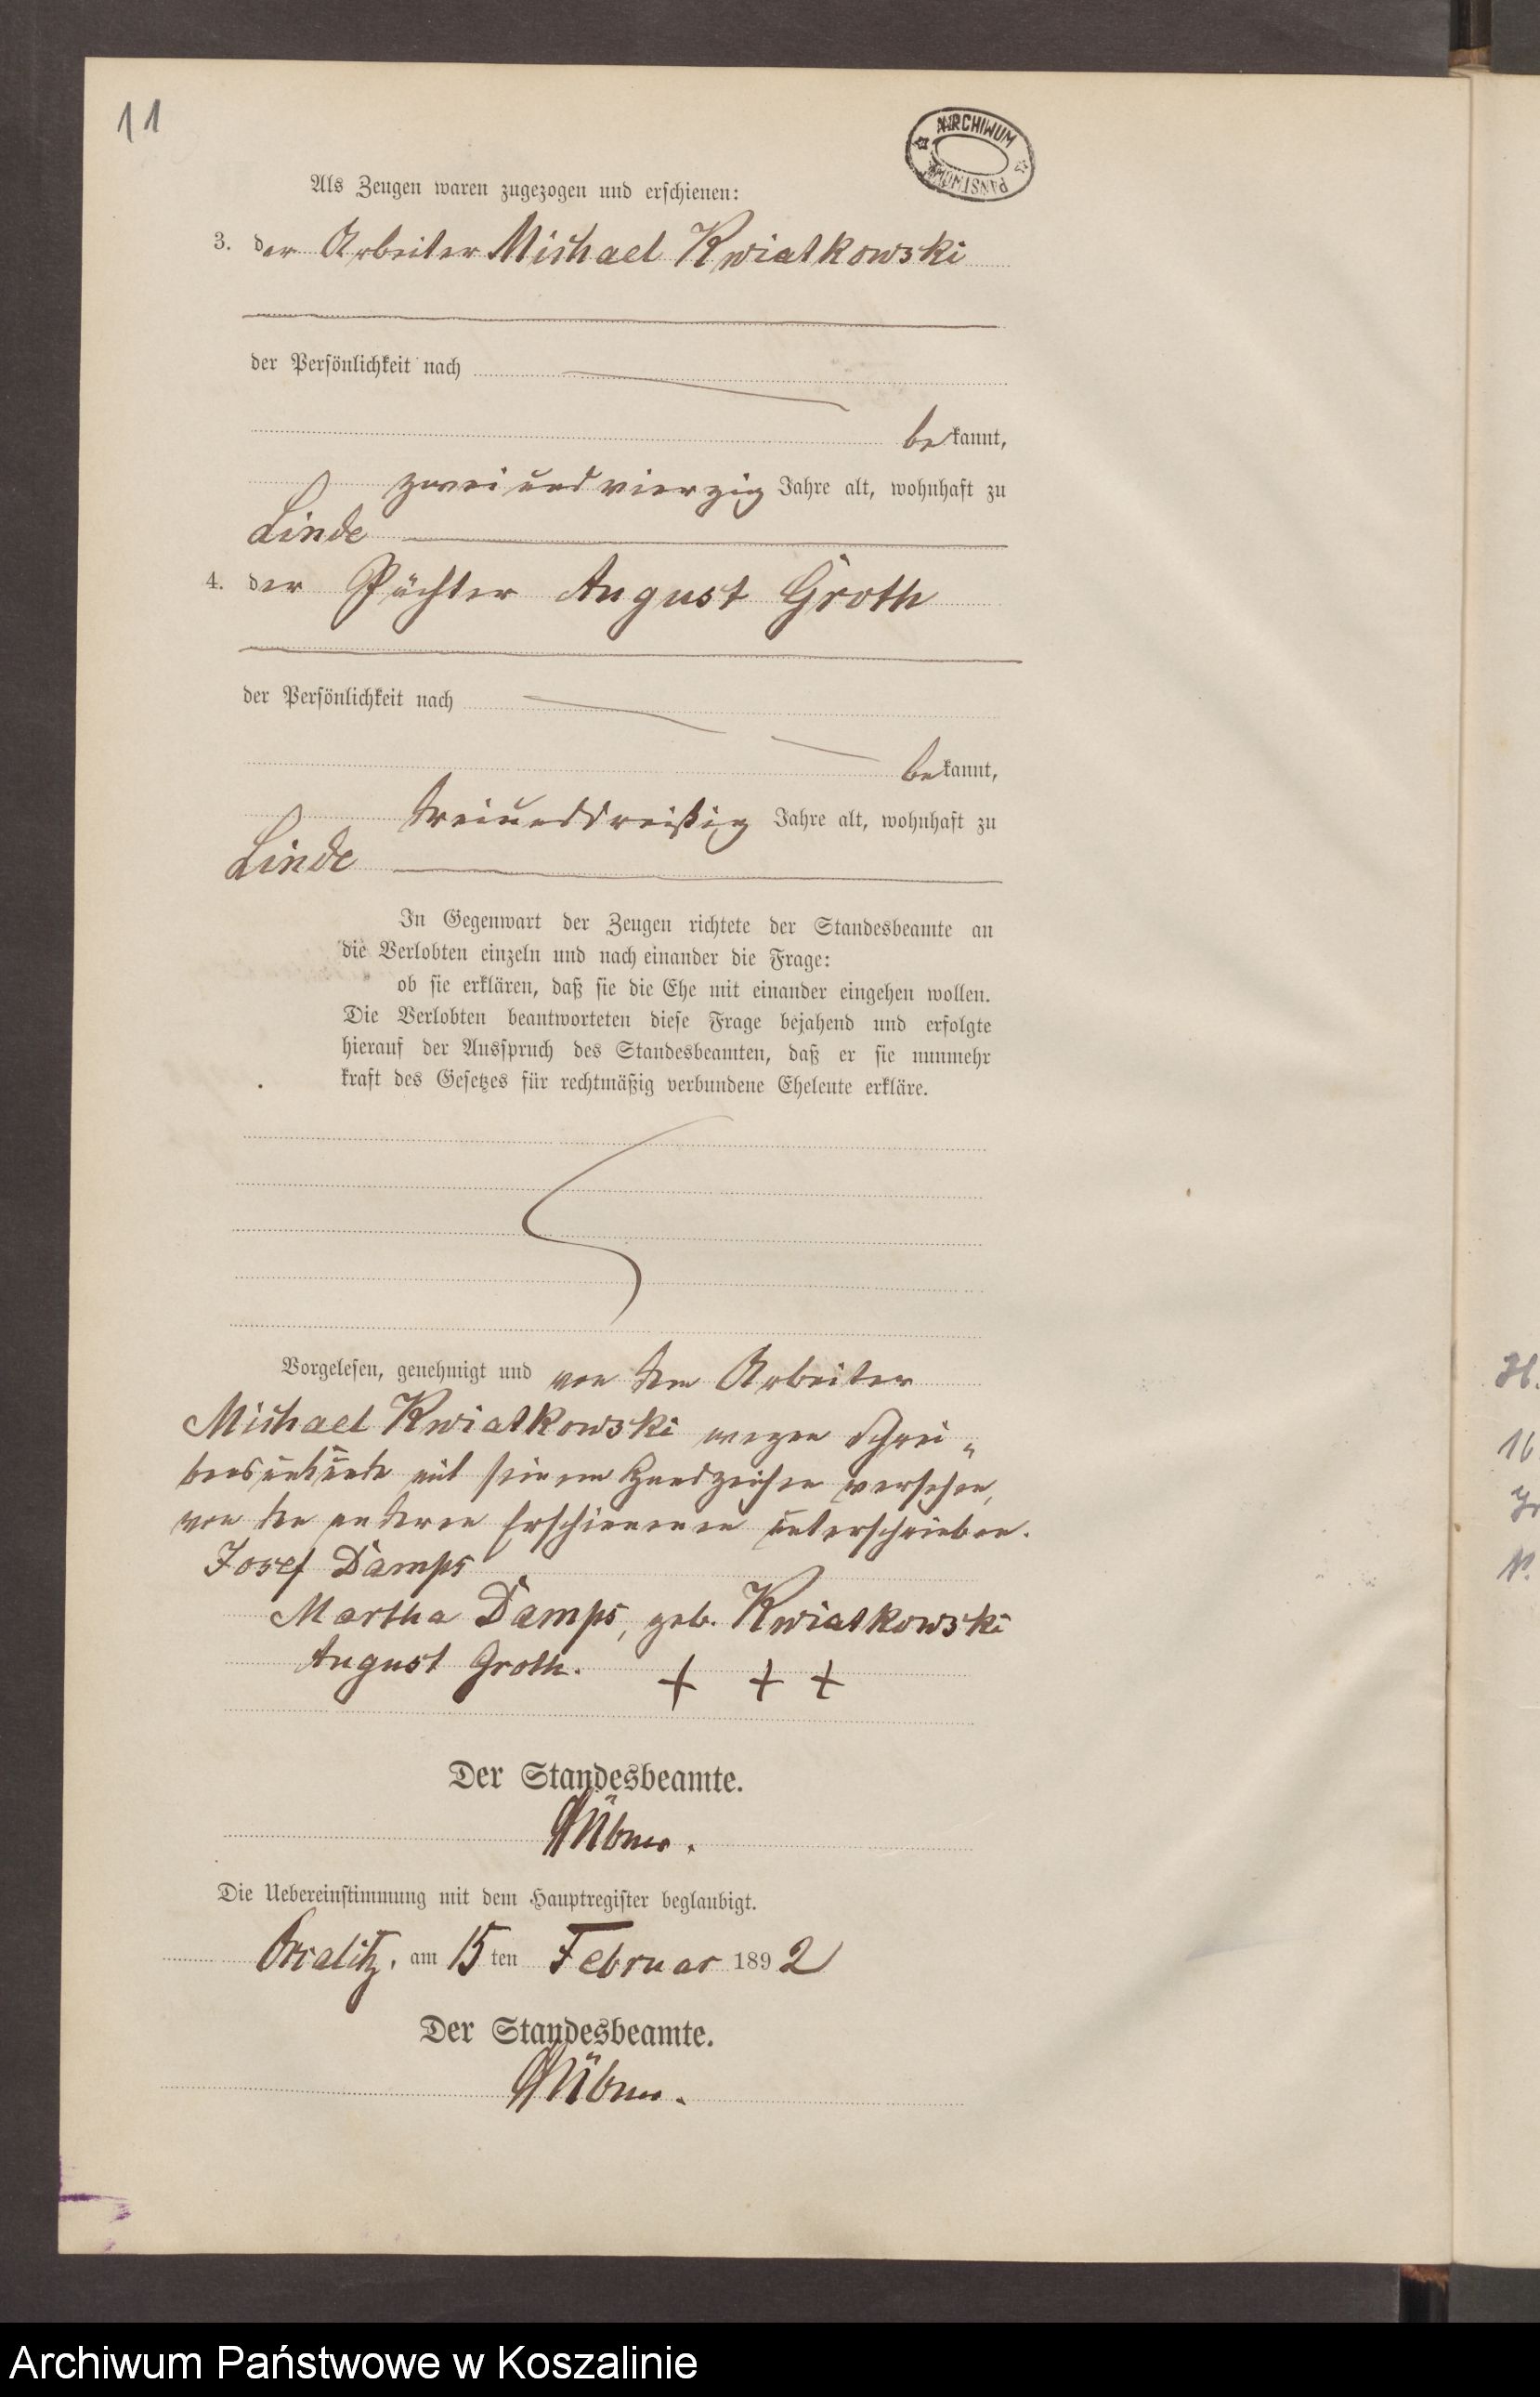 11
ARCHIWUM PAŃSTWOWE
Als Zeugen waren zugezogen und erschienen:
3. der Arbeiter Michael Kwiatkowski
der Persönlichkeit nach
bekannt,
zwei und vierzig Jahre alt, wohnhaft zu
Linde
4. der Pächter August Groth
der Persönlichkeit nach
bekannt,
dreiunddreißig Jahre alt, wohnhaft zu
Linde
In Gegenwart der Zeugen richtete der Standesbeamte an
die Verlobten einzeln und nach einander die Frage:
ob sie erklären, daß sie die Ehe mit einander eingehen wollen.
Die Verlobten beantworteten diese Frage bejahend und erfolgte
hierauf der Ausspruch des Standesbeamten, daß er sie nunmehr
kraft des Gesetzes für rechtmäßig verbundene Eheleute erkläre.
Vorgelesen, genehmigt und von dem Arbeiter
Michael Kwiatkowski wegen Schrei-
bensunkunde mit seinem Handzeichen versehen,
von den anderen Erschienenen unterschrieben.
Josef Damps
Martha Damps, geb. Kwiatkowski
August Groth. + + +
Der Standesbeamte.
Die Uebereinstimmung mit dem Hauptregister beglaubigt.
am 15ten Februar 1892
Der Standesbeamte.
Archiwum Państwowe w Koszalinie